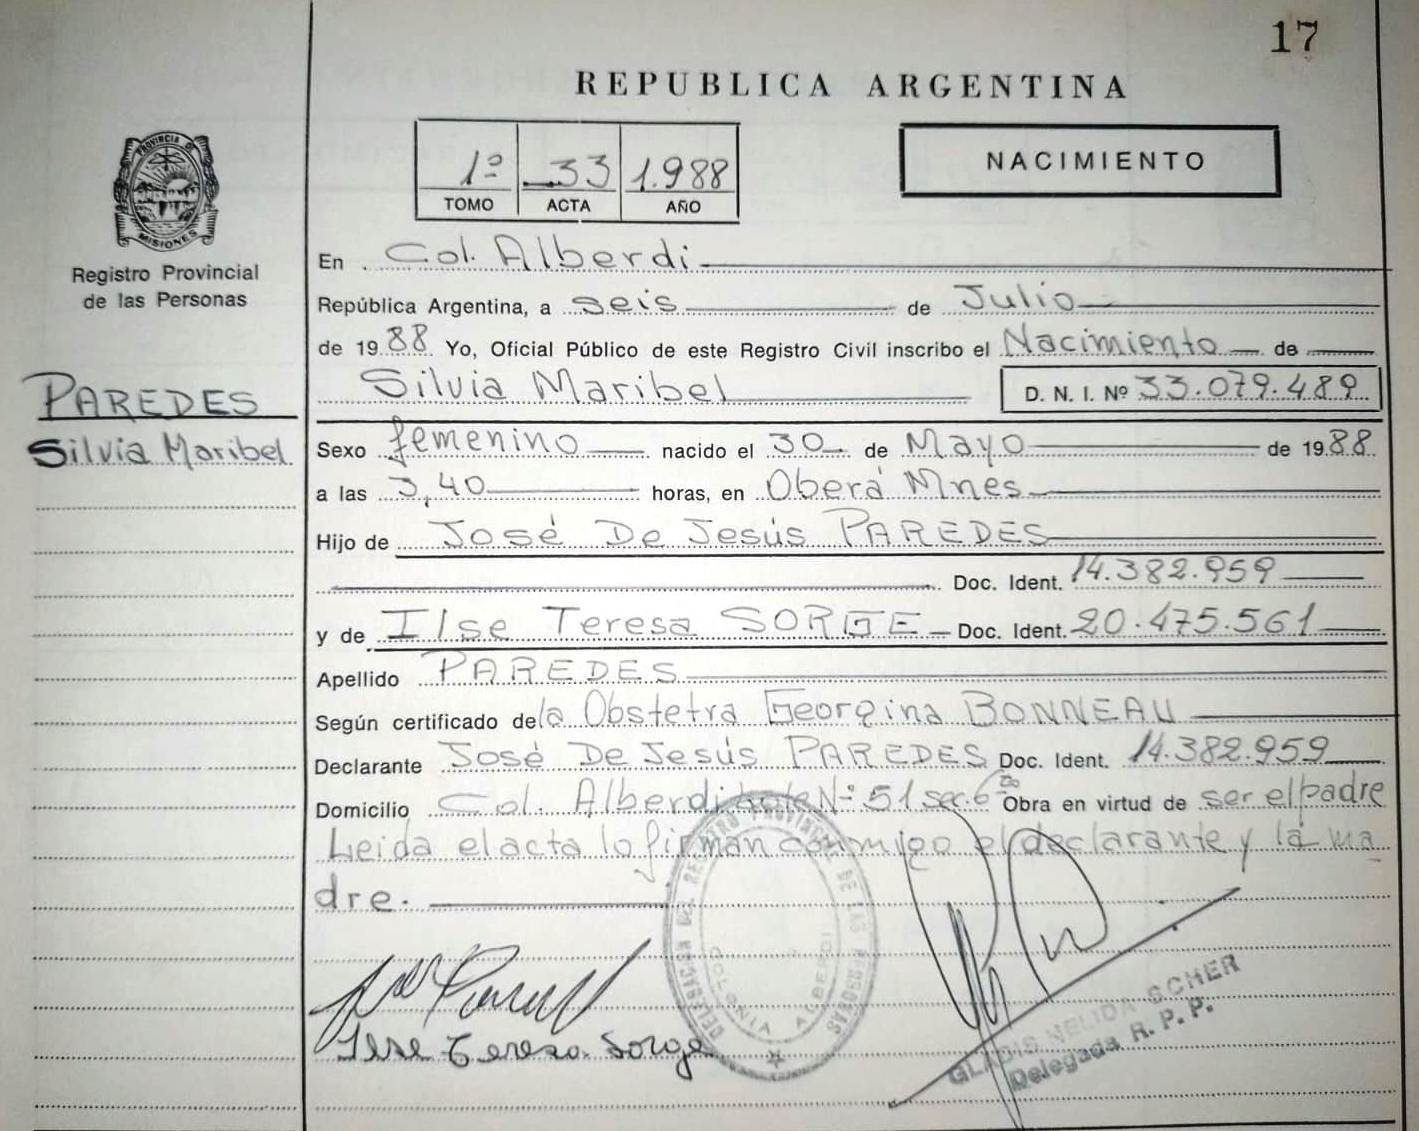 17
REPUBLICA ARGENTINA
PROVINCIA D
MISIONES
Registro Provincial
de las Personas
1º 33 1.988
TOMO ACTA AÑO
NACIMIENTO
En Col. Alberdi
República Argentina, a seis de Julio
de 1988 Yo, Oficial Público de este Registro Civil inscribo el Nacimiento de
Silvia Maribel D. N. I. Nº 33.079.489
PAREDES
Silvia Maribel
Sexo femenino nacido el 30 de Mayo de 1988
a las 3,40 horas, en Oberá Mnes
Hijo de José De Jesús PAREDES
Doc. Ident. 14.382.959
y de Ilse Teresa SORGE Doc. Ident. 20.475.561
Apellido PAREDES
Según certificado de la Obstetra Georgina BONNEAU
Declarante José De Jesús PAREDES Doc. Ident. 14.382.959
Domicilio Col. Alberdi lote Nº 51 sec. 6 Obra en virtud de ser el padre
Leida el acta lo firman conmigo el declarante y la ma
dre.
DELEGACION DEL REGISTRO PROVINCIAL DE LAS PERSONAS
COLONIA ALBERDI
Ilse Teresa Sorge
GLADIS NELIDA SCHER
Delegada R. P. P.